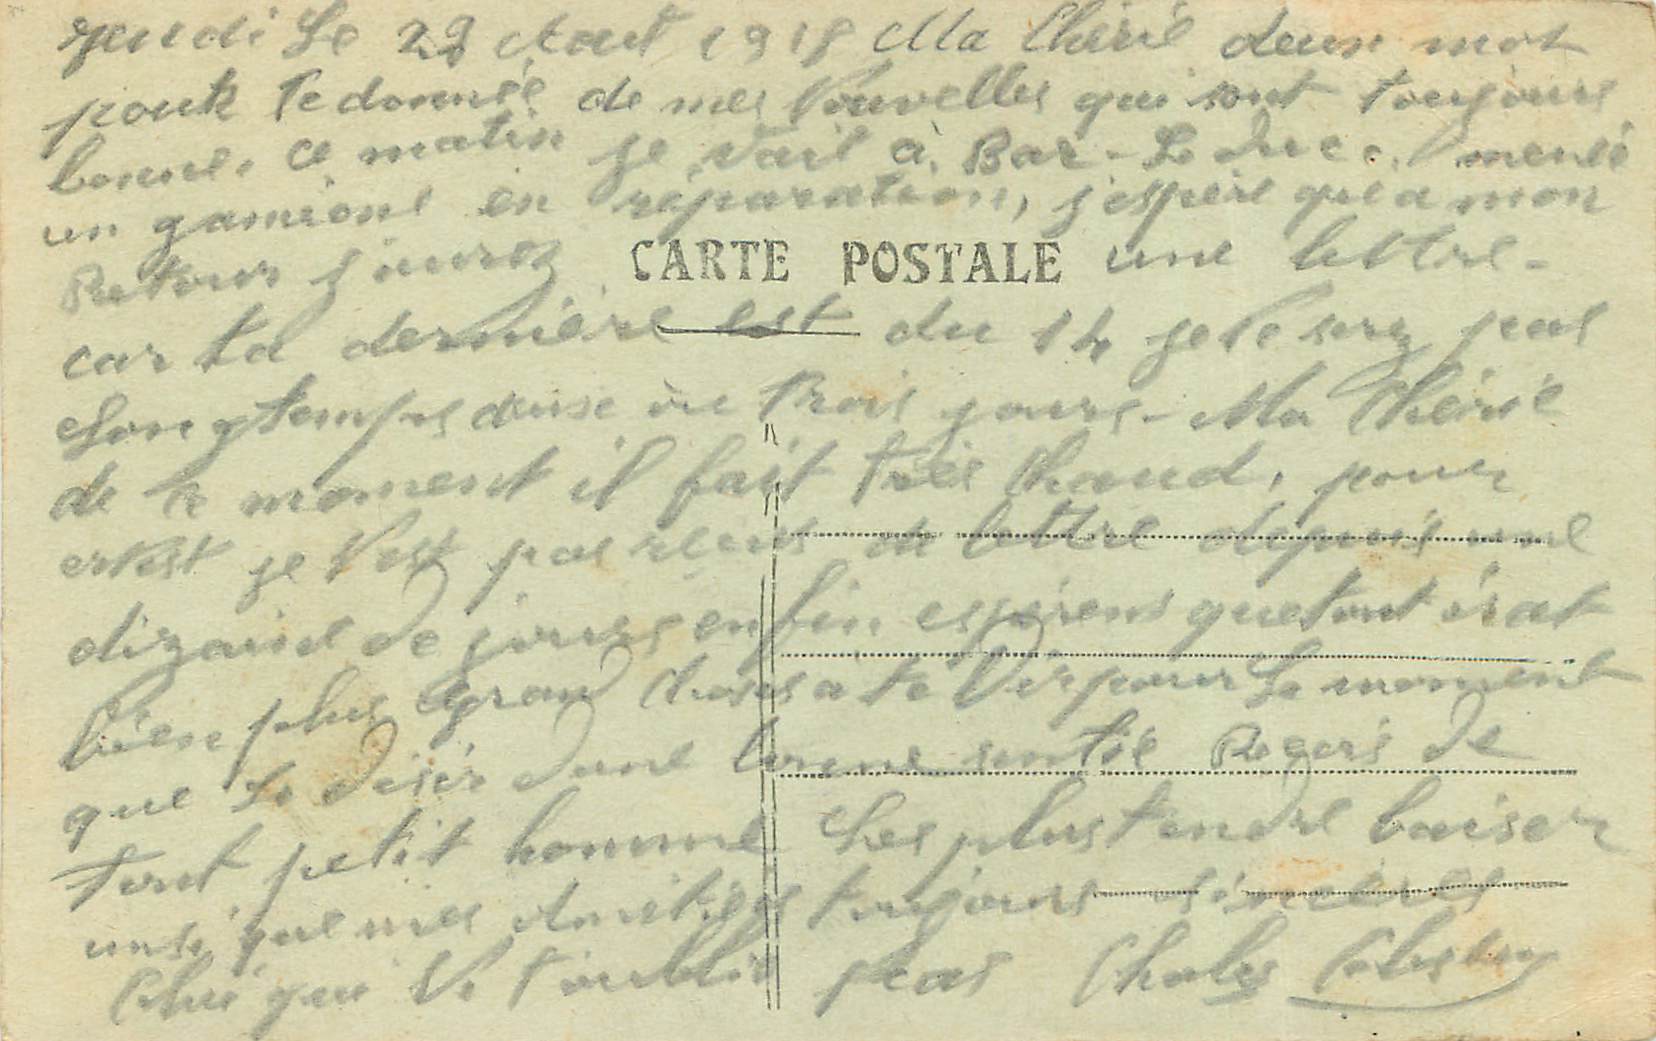 Jeudi Le 29 Aout 1918 Ma Cherie deux mot
pour te donnée de mes Nouvelles qui sont toujours
bonne. ce matin je vais à Bar-Le Duc. mené
un gamions en réparation, j'espère que a mon
Retour j'aurez une lettre-
CARTE POSTALE
car ta dernière est du 14 je ne serez pas
Longtemps deuse ou trois jours- Ma Chérie
de ce moment il fait très chaud, pour
je pas de lettre depuis une
dizaine de jours enfin espérens que tout
bien plus grand choses a te pour le moment
que Le désir d'une bonne sentié de
tout petit homme Les plus tendre baiser
insi que mes Amitiés toujours sincères
Celui qui ne t'oublie pas